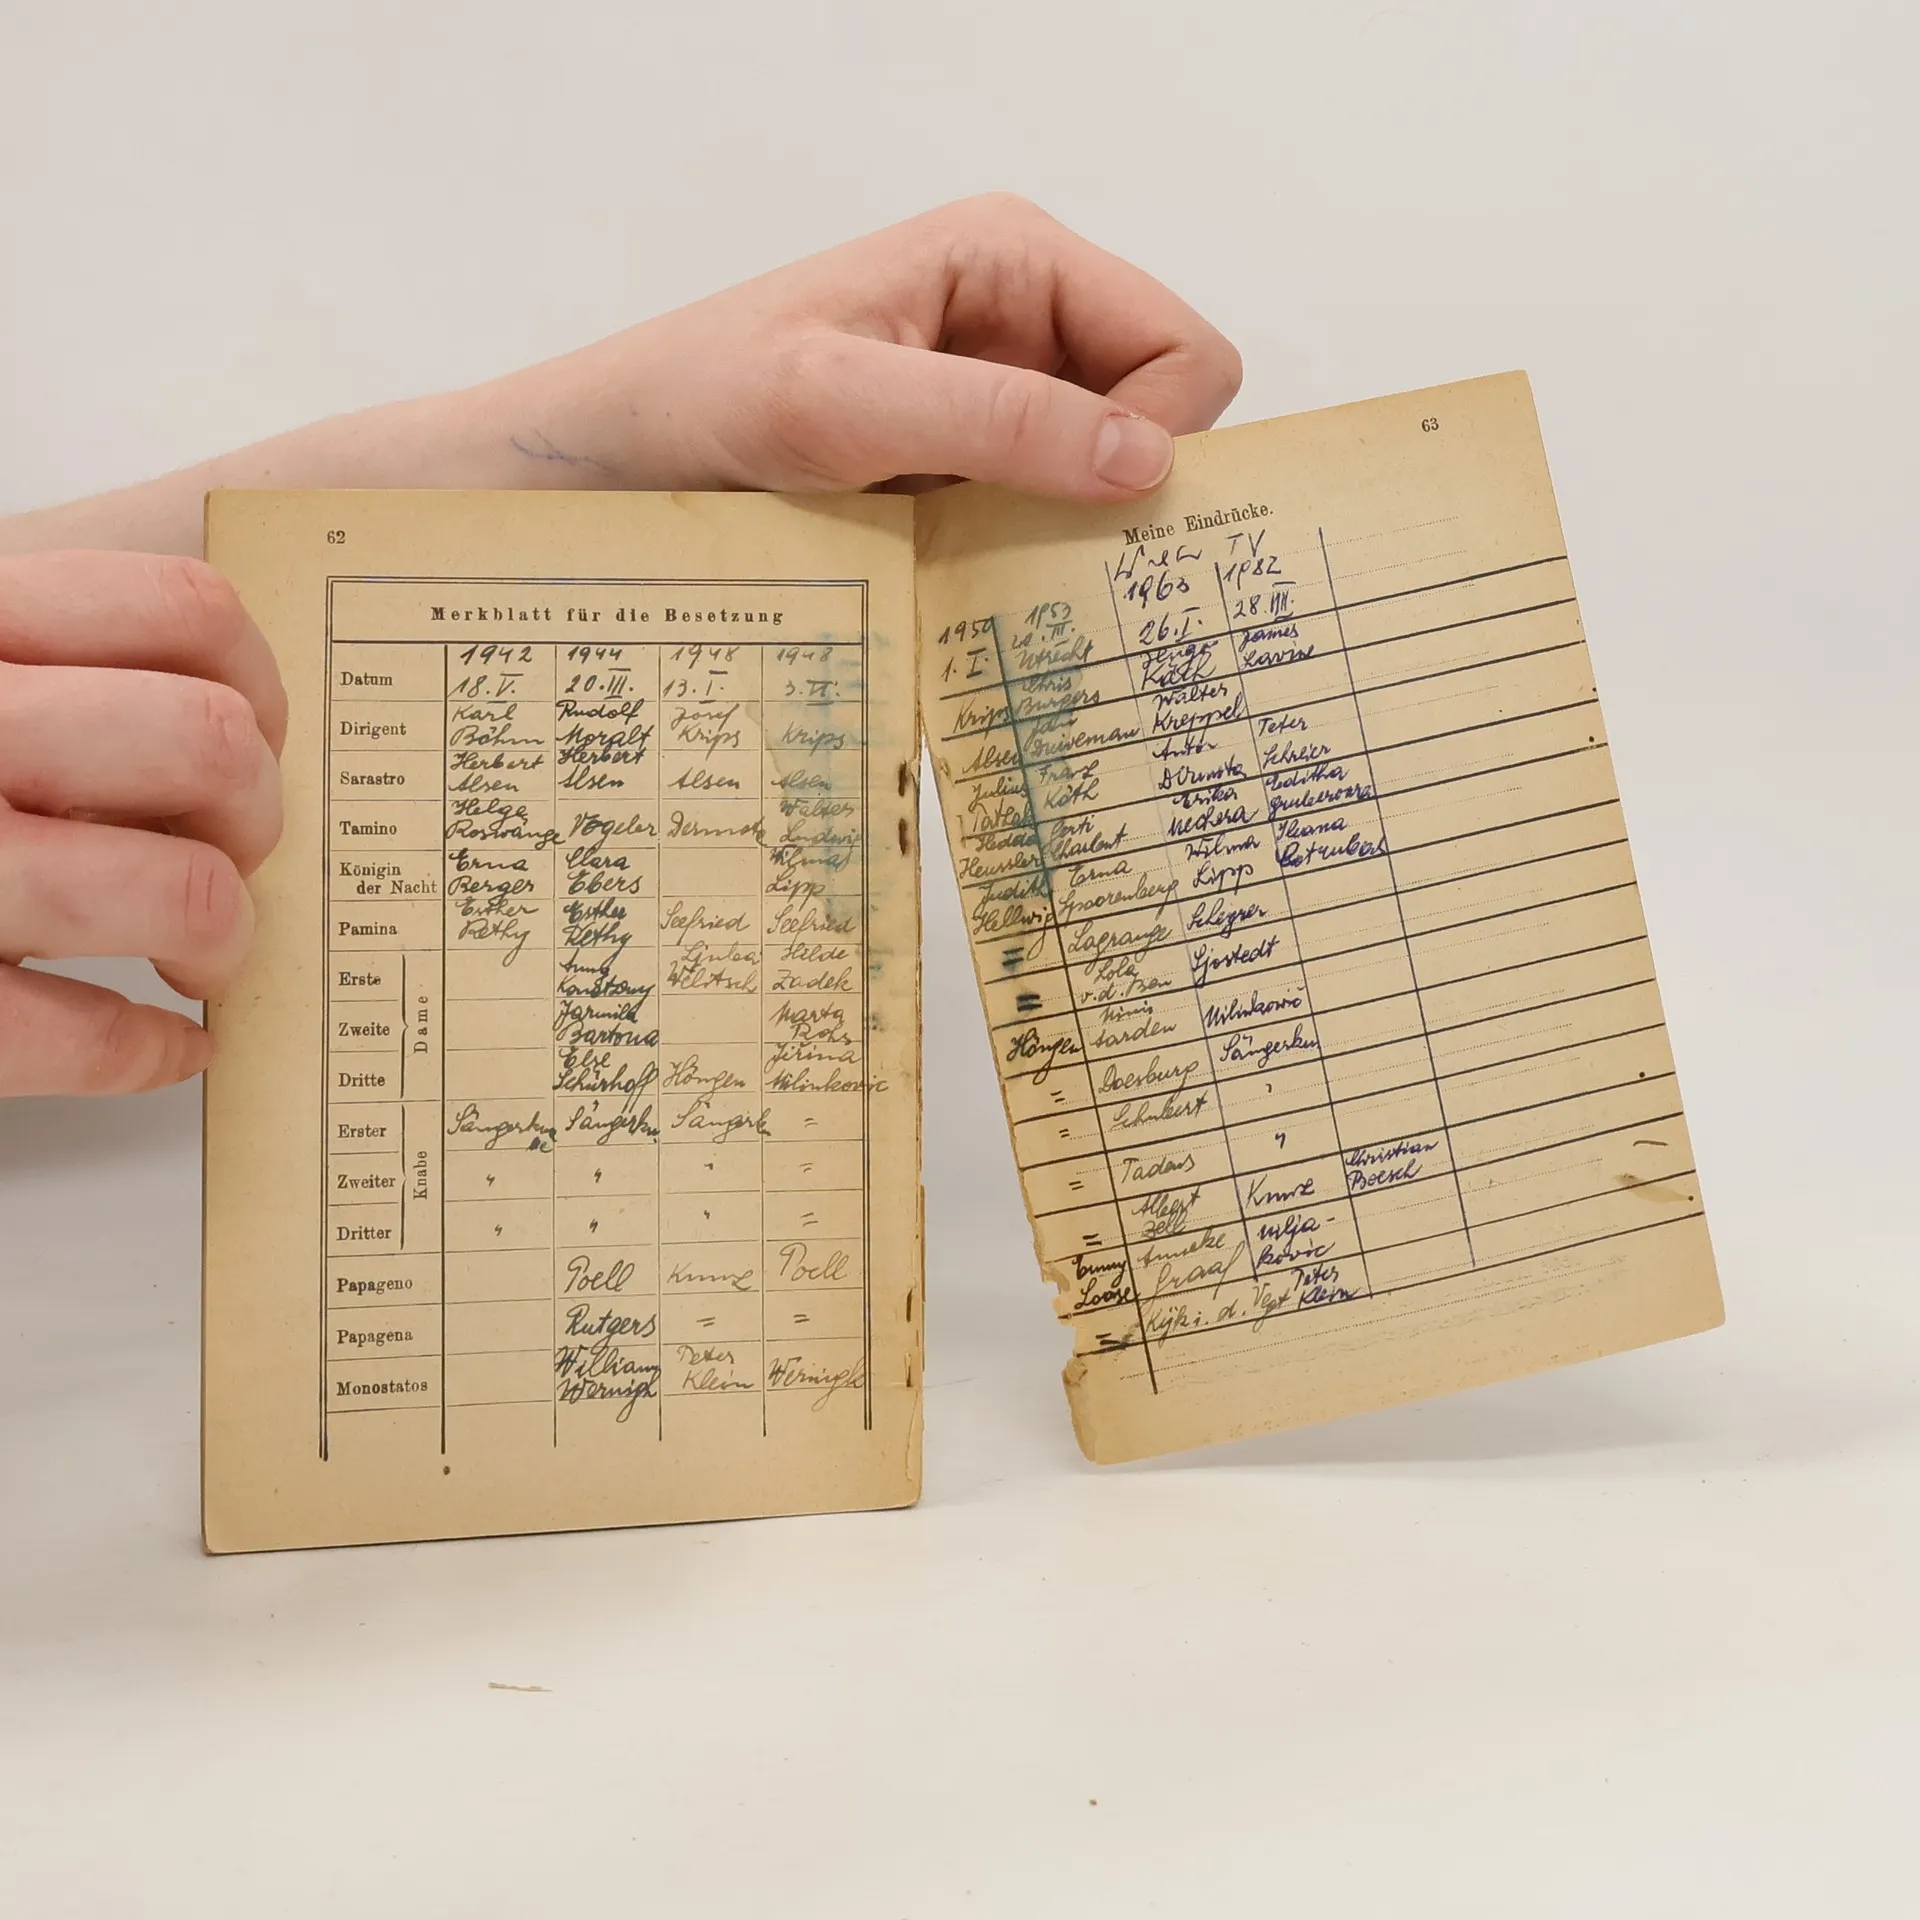 62
Merkblatt für die Besetzung
Datum 1942 18.V. 1944 20.III. 1948 13.I. 1948 3.VI.
Dirigent Karl Böhm Rudolf Moralt Josef Krips Krips
Sarastro Herbert Alsen Herbert Alsen Alsen Alsen
Tamino Helge Roswänge Vogeler Dermota Walter Ludwig
Königin der Nacht Erna Berger Clara Ebers Wilma Lipp
Pamina Esther Rethy Esther Rethy Seefried Seefried
Erste Dame Konetzny Ljuba Welitsch Hilde Zadek
Zweite Jarmila Bartona Marta Rohs
Dritte Else Schürhoff Höngen Jiřina Milinkovic
Erster Knabe Sängerkna Sängerkn. Sängerk =
Zweiter " " " =
Dritter " " " =
Papageno Poell Kunz Poell
Papagena Rutgers = =
Monostatos William Wernigk Peter Klein Wernigk
63
Meine Eindrücke.
Wien TV
1950 1953 1963 1982
1.I. III. 26.I. 28.
Utrecht
Krips Chris Burgers Käth James Lavine
Alsen Jan Duiveman Walter Kreppel
Julius Franz Köth Anton Dermota Peter Schreier
Hedda Heusser Certi Charlent Erika Mechera Editha Gruberowa
Judith Hellwig Erna Spoorenberg Wilma Lipp Ileana Cotrubas
= Lagrange Scheyrer
= Lola v.d. Sjöstedt
Höngen Mimi Aarden Milinkovič
= Doesburg Sängerkn
= Schubert "
= Tadens "
= Albert Zell Kunz Christian Boesch
Emmy Loose Anneke Graaf Milja-kovic
= Kijk i.d. Vegt Peter Klein